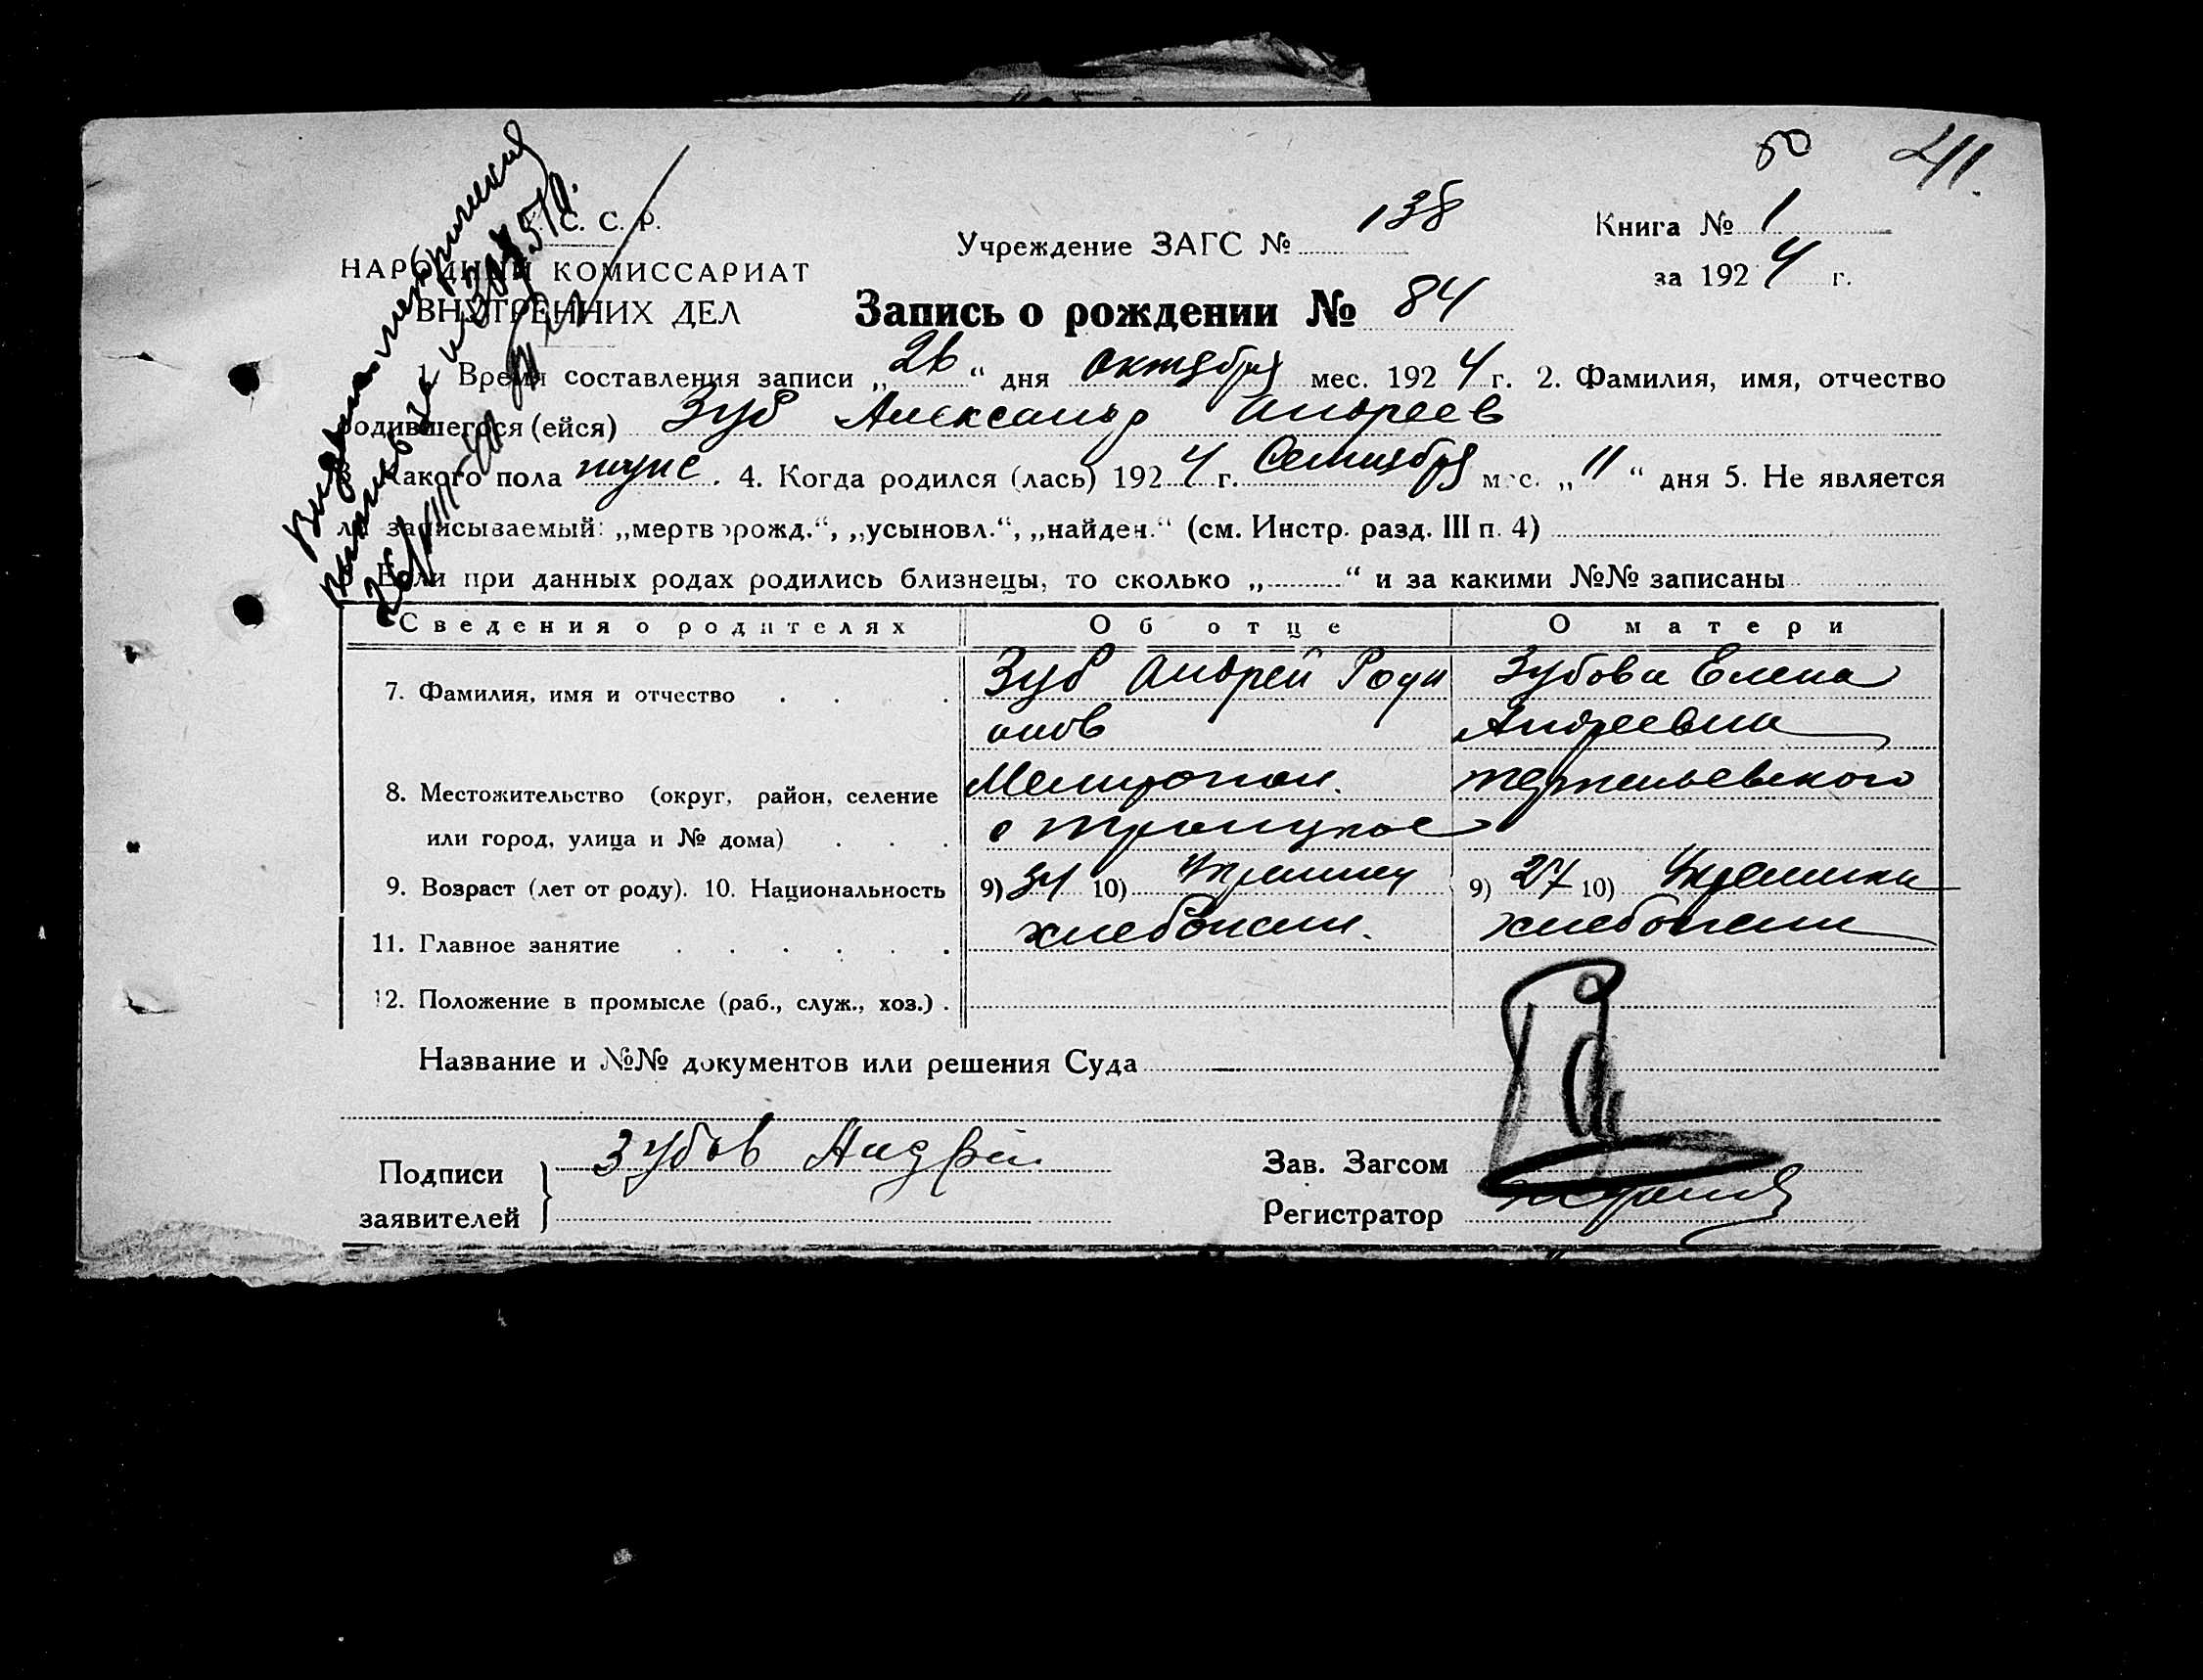 50 211.
С. С. Р.
НАРОДНЫЙ КОМИССАРИАТ
ВНУТРЕННИХ ДЕЛ
Учреждение ЗАГС № 138
Книга № 1
за 1924 г.
Запись о рождении № 84
1. Время составления записи „26“ дня октября мес. 1924 г. 2. Фамилия, имя, отчество
родившегося (ейся) Зуб Александр Андреев
Какого пола муж. 4. Когда родился (лась) 1924 г. Сентября мес. „11“ дня 5. Не является
ли записываемый: „мертворожд.“, „усыновл.“, „найден.“ (см. Инстр. разд. III п. 4)
Если при данных родах родились близнецы, то сколько „ “ и за какими №№ записаны
Сведения о родителях Об отце О матери
7. Фамилия, имя и отчество Зуб Андрей Роди Зубова Елена
онов Андреевна
8. Местожительство (округ, район, селение Мелитопол.
или город, улица и № дома) с Троицкое
9. Возраст (лет от роду). 10. Национальность 9) 34 10) Украинец 9) 27 10) Украинка
11. Главное занятие хлебопаш. хлебопаш
12. Положение в промысле (раб., служ., хоз.)
Название и №№ документов или решения Суда
Подписи
заявителей
Зубов Андрей
Зав. Загсом
Регистратор